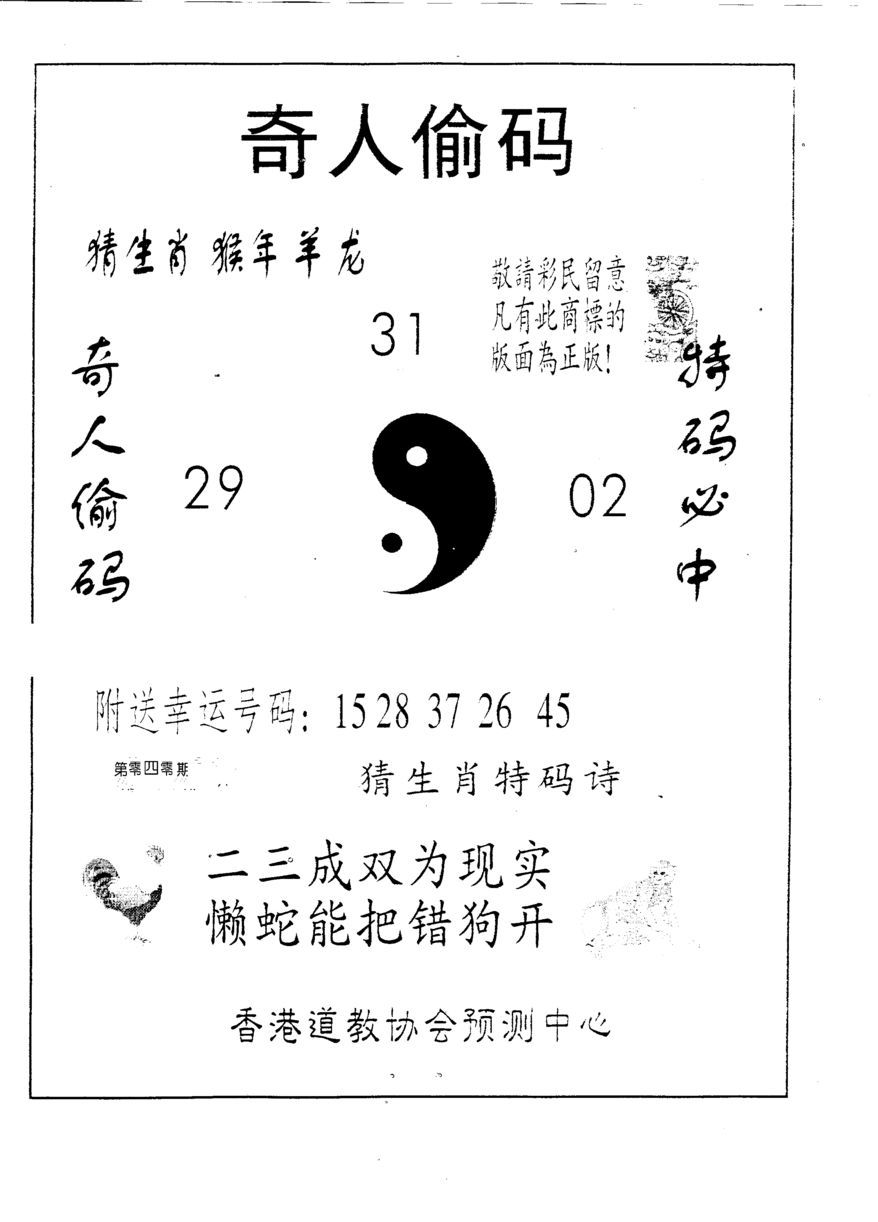 奇人偷码
猜生肖猴年羊龙
敬請彩民留意
凡有此商標的
版面為正版！
31
奇人偷码
29
02
特码必中
附送幸运号码：15 28 37 26 45
第零四零期
猜生肖特码诗
二三成双为现实
懒蛇能把错狗开
香港道教协会预测中心